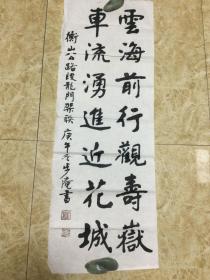 雲海前行觀壽嶽
車流湧進近花城
衡山公路段龍門架联
庚午冬步庵書